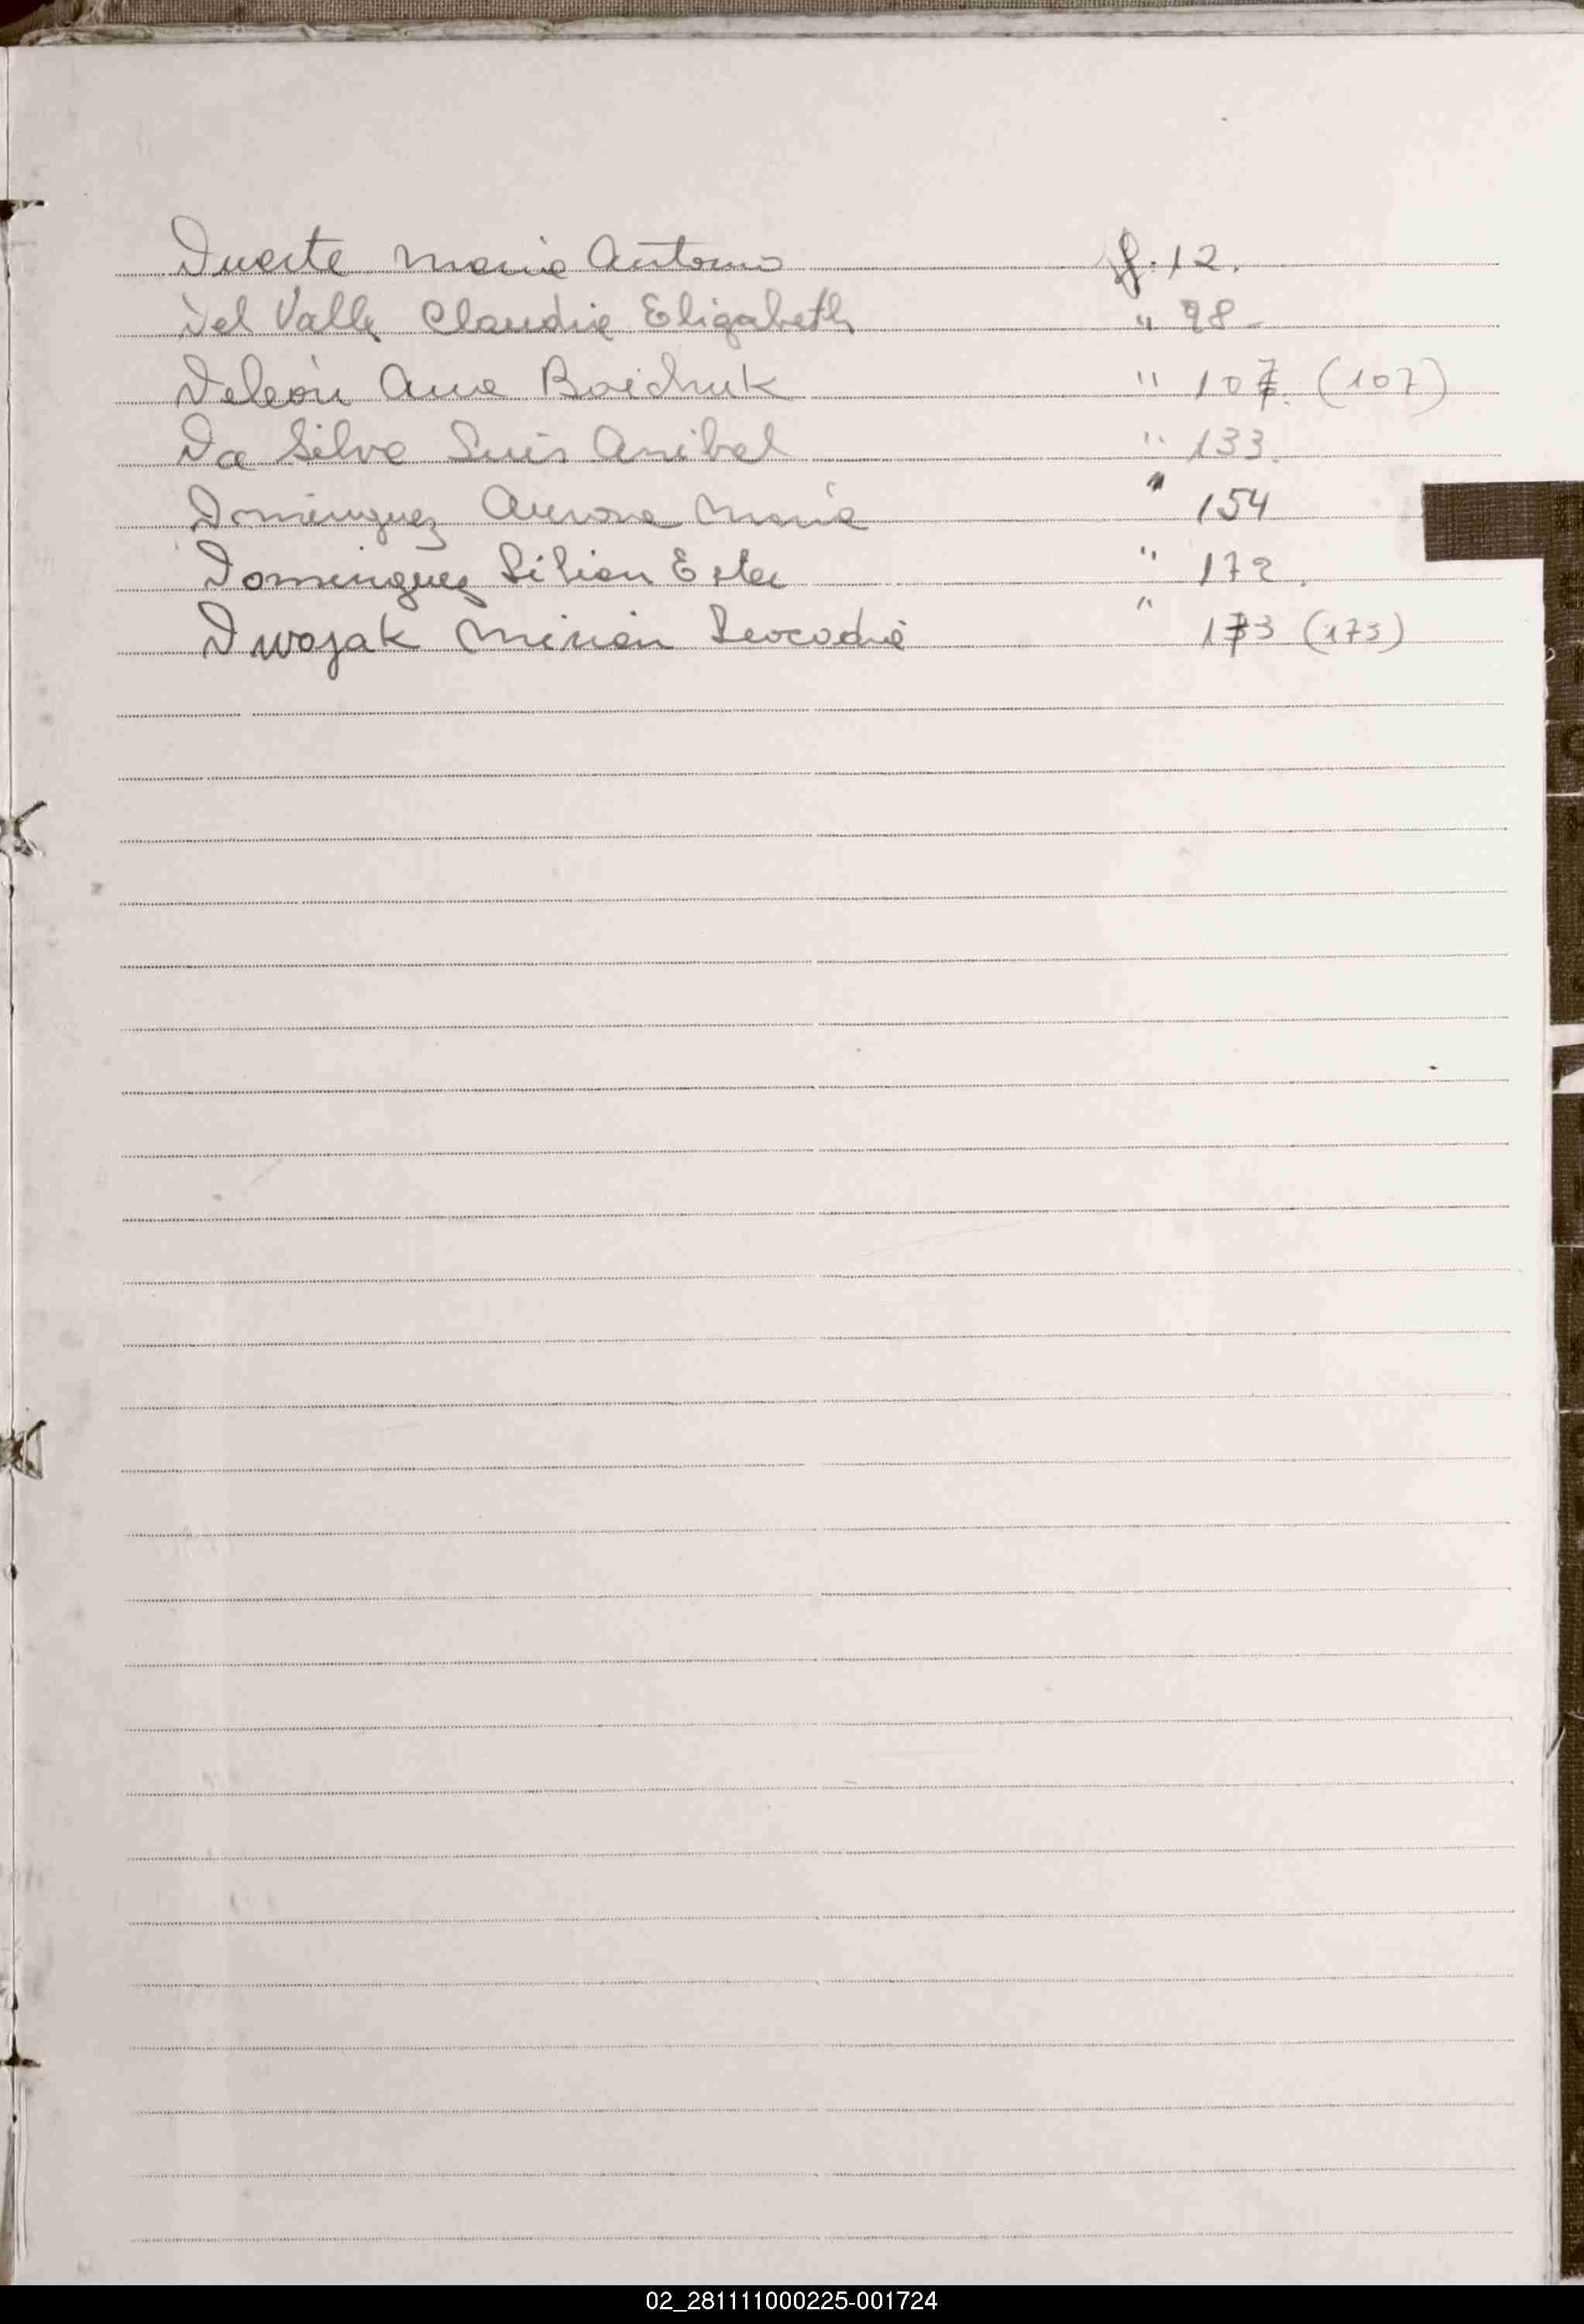 Duarte Maria Antonio f. 12.
Del Valle Claudia Elizabeth " 98 -
Deleon Ana Boichuk " 107. (107)
Da Silva Luis Anibal " 133.
Dominguez Aurora Maria " 154
Dominguez Lilian Ester " 172.
Dwojak Mirian Leocadia " 173 (173)
02_281111000225-001724